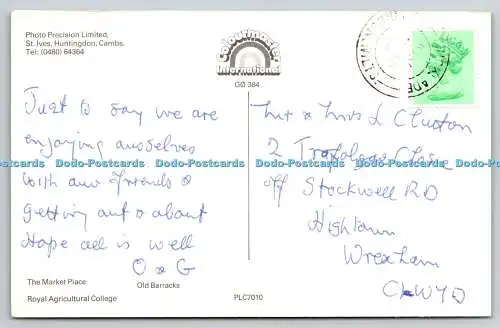 Photo Precision Limited,
St. Ives, Huntingdon, Cambs.
Tel: (0480) 64364
Colourmaster
International
GØ 384
Just to say we are
enjoying ourselves
with our friends &
getting out & about
Hope all is well
O & G
Mr & Mrs L Clutton
2 Trafalgar Close
off Stockwell RD
Hightown
Wrexham
CLWYD
Dodo-Postcards Dodo-Postcards Dodo-Postcards Dodo-Postcards Dodo-Postcards
The Market Place
Old Barracks
Royal Agricultural College
PLC7010